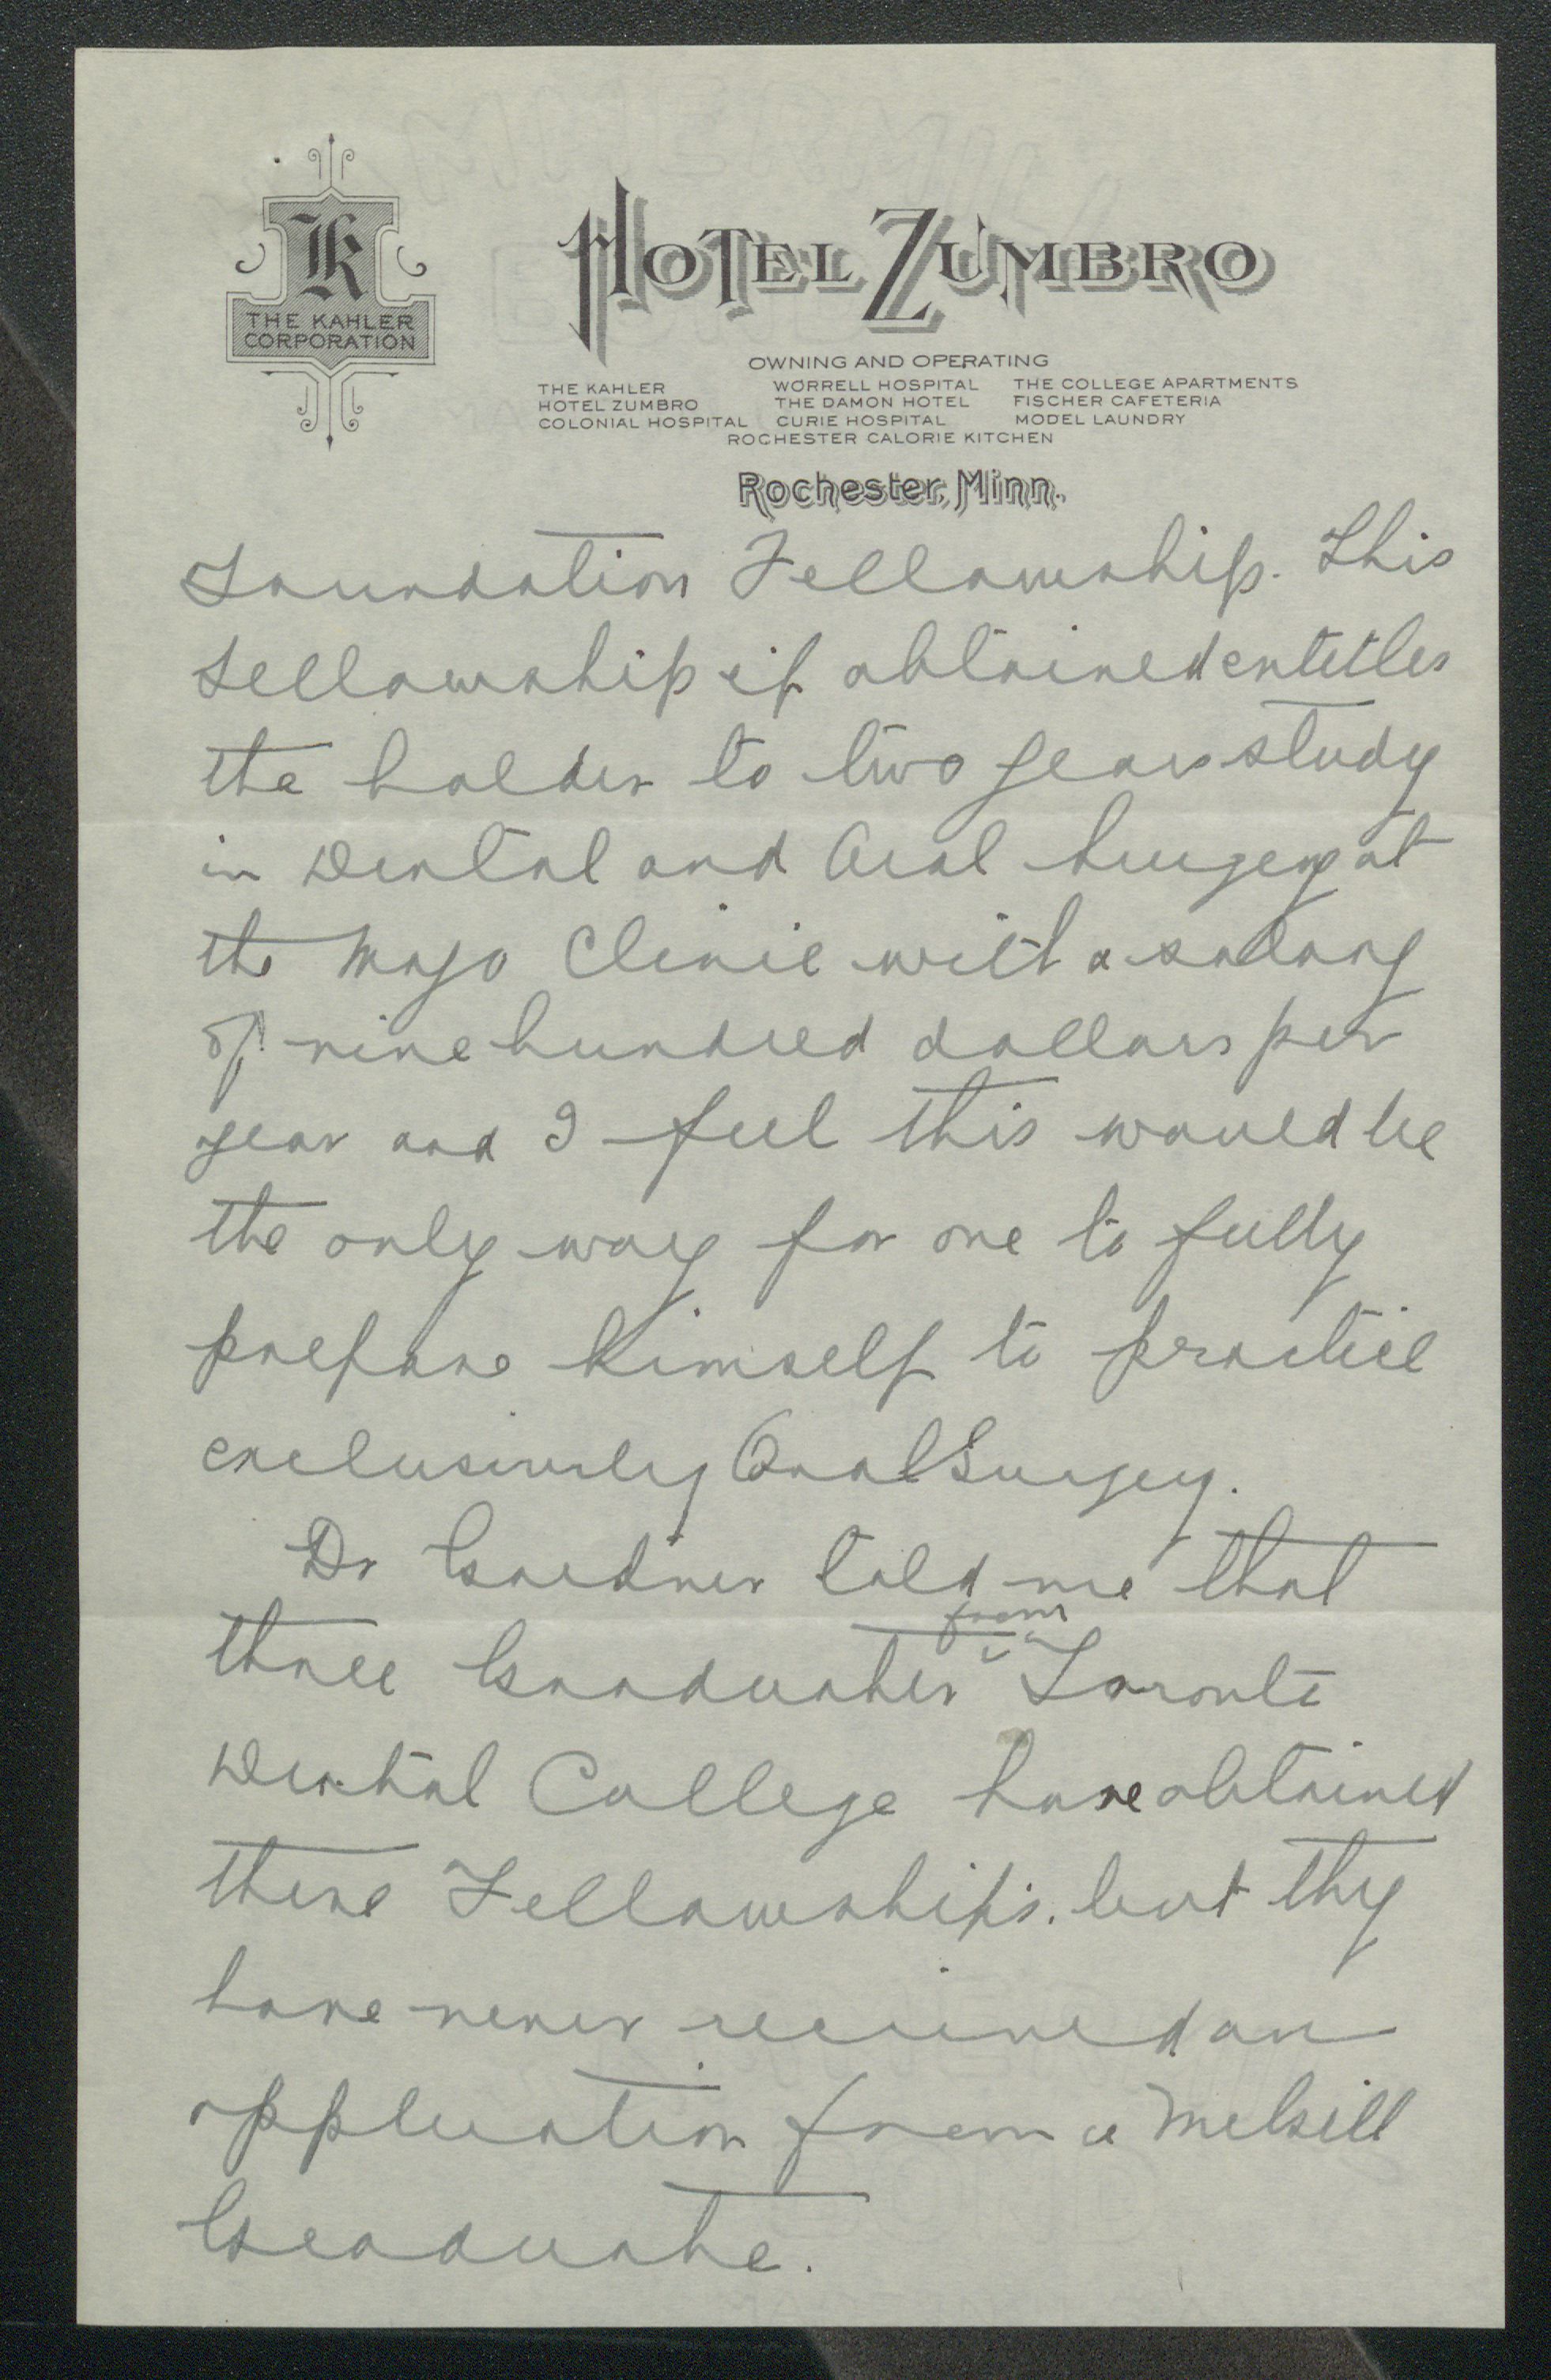 K
THE KAHLER
CORPORATION
HOTEL ZUMBRO
OWNING AND OPERATING
THE KAHLER WORRELL HOSPITAL THE COLLEGE APARTMENTS
HOTEL ZUMBRO THE DAMON HOTEL FISCHER CAFETERIA
COLONIAL HOSPITAL CURIE HOSPITAL MODEL LAUNDRY
ROCHESTER CALORIE KITCHEN
Rochester, Minn.
Foundation Fellowship. This
Fellowship if obtained entitles
the holder to two years study
in Dental and Oral Surgery at
the Mayo Clinic with a salary
of nine hundred dollars per
year and I feel this would be
the only way for one to fully
prepare himself to practice
exclusively Oral Surgery.
Dr Gardner told me that
three Graduates from Toronto
Dental College have obtained
these Fellowships. but they
have never received an
application from a McGill
Graduate.